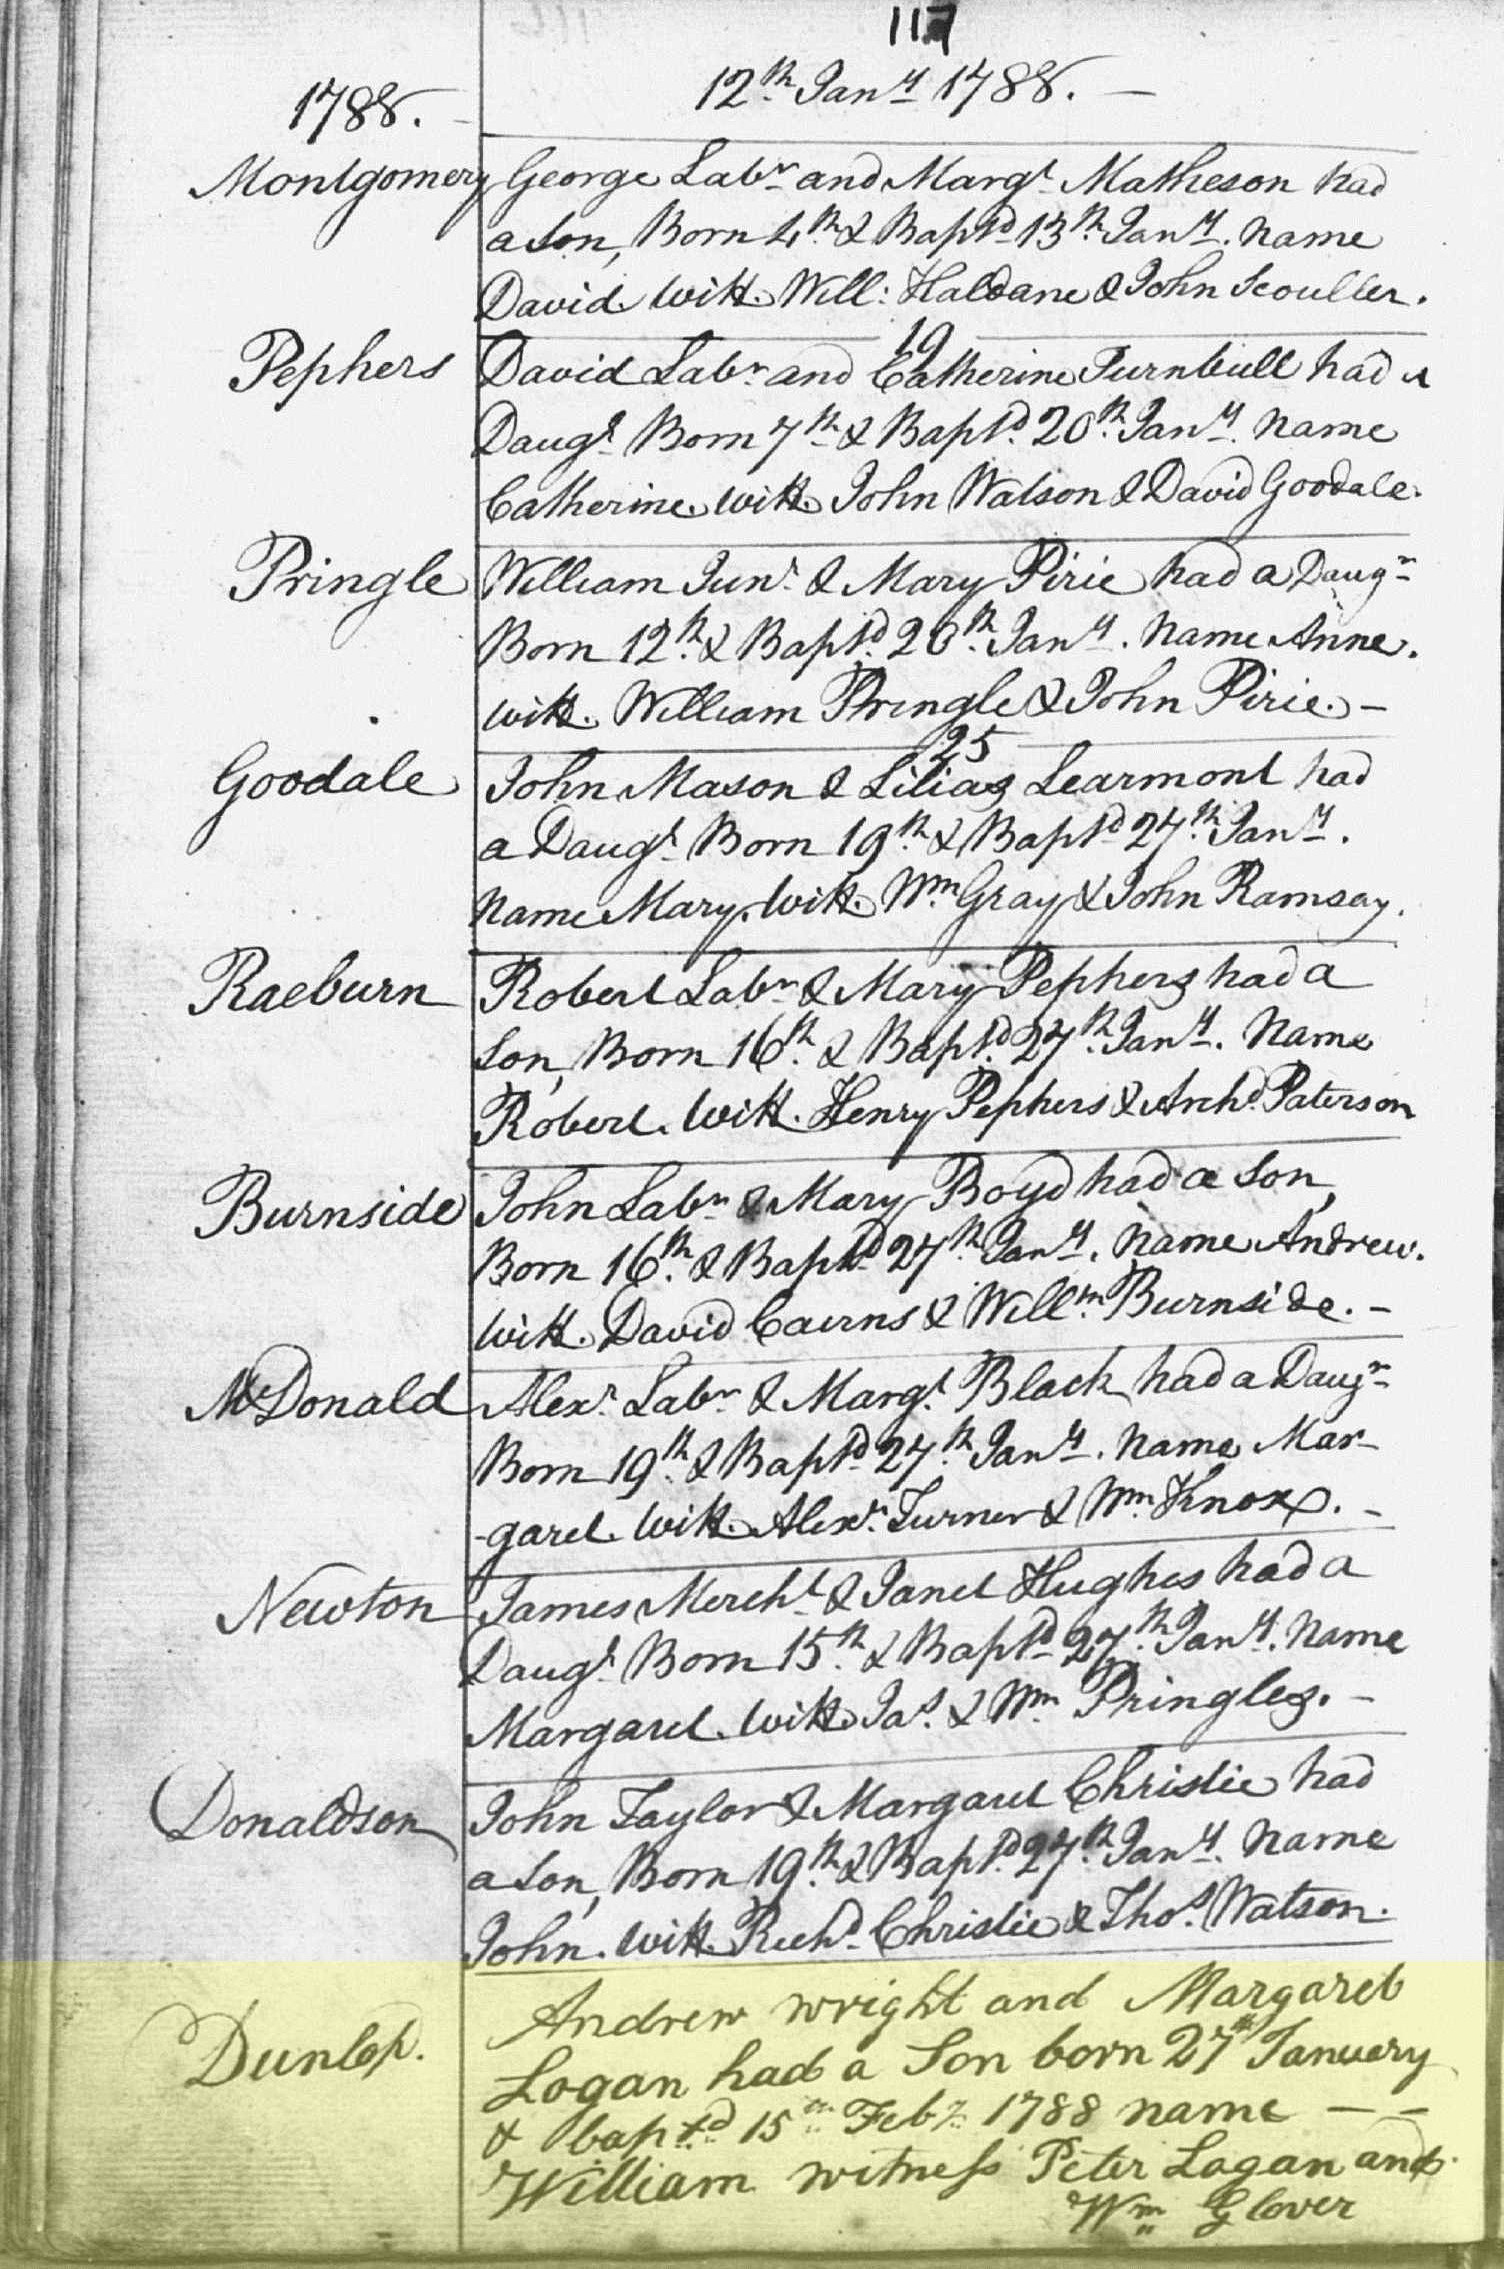 117
1788. 12th Jany 1788. —
Montgomery George Labr and Margt Matheson had
a Son, Born 4th & Baptd 13th Jany. Name
David. Witt. Will: Haldane & John Scouller.
19
Pephers David Labr and Catherine Turnbull had a
Daugr Born 7th & Baptd. 20th Jany. Name
Catherine. Witt. John Watson & David Goodale.
Pringle William Junr & Mary Pirie had a Daugr
Born 12th & Baptd. 20th Jany. Name Anne.
Witt. William Pringle & John Pirie. —
25
Goodale John Mason & Lilias Learmont had
a Daugr Born 19th & Baptd 27th Jany.
Name Mary. Witt. Wm Gray & John Ramsay.
Raeburn Robert Labr & Mary Pephers had a
Son, Born 16th & Baptd. 27th Jany. Name
Robert. Witt. Henry Pephers & Archd Paterson
Burnside John Labr & Mary Boyd had a Son,
Born 16th & Baptd 27th Jany. Name Andrew.
Witt. David Cairns & Willm Burnside. —
McDonald Alexr Labr & Margt Black had a Daugr
Born 19th & Baptd 27th Jany. Name Mar-
-garet. Witt. Alexr Turner & Wm Knox. —
Newton James Mercht & Janet Hughes had a
Daugr Born 15th & Baptd 27th Jany. Name
Margaret. Witt. Jas. & Wm Pringles. —
Donaldson John Taylor & Margaret Christie had
a Son, Born 19th & Baptd. 27th Jany. Name
John. Witt. Richd Christie & Thos. Watson.
Dunlop. Andrew wright and Margaret
Logan had a Son born 27th January
& baptd 15th Feby 1788 name — —
William witness Peter Logan and
Wm Glover